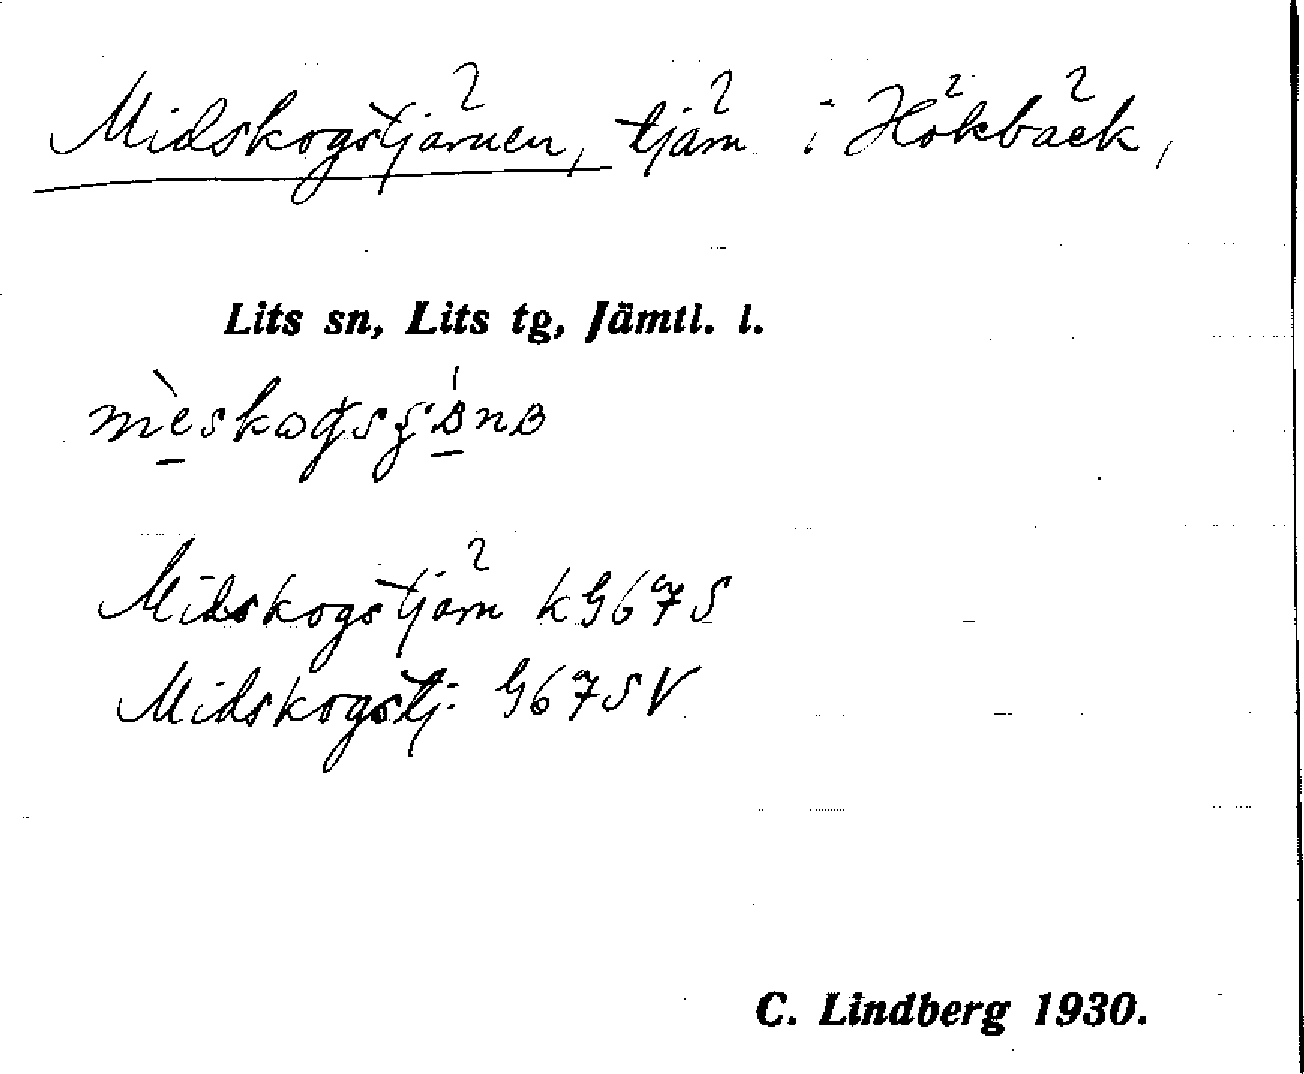 Midskogstjärnen, tjärn i Hökbäck,
Lits sn, Lits tg, Jämtl. l.
Midskogstjärn kG67S
Midskogstj. G67SV
C. Lindberg 1930.